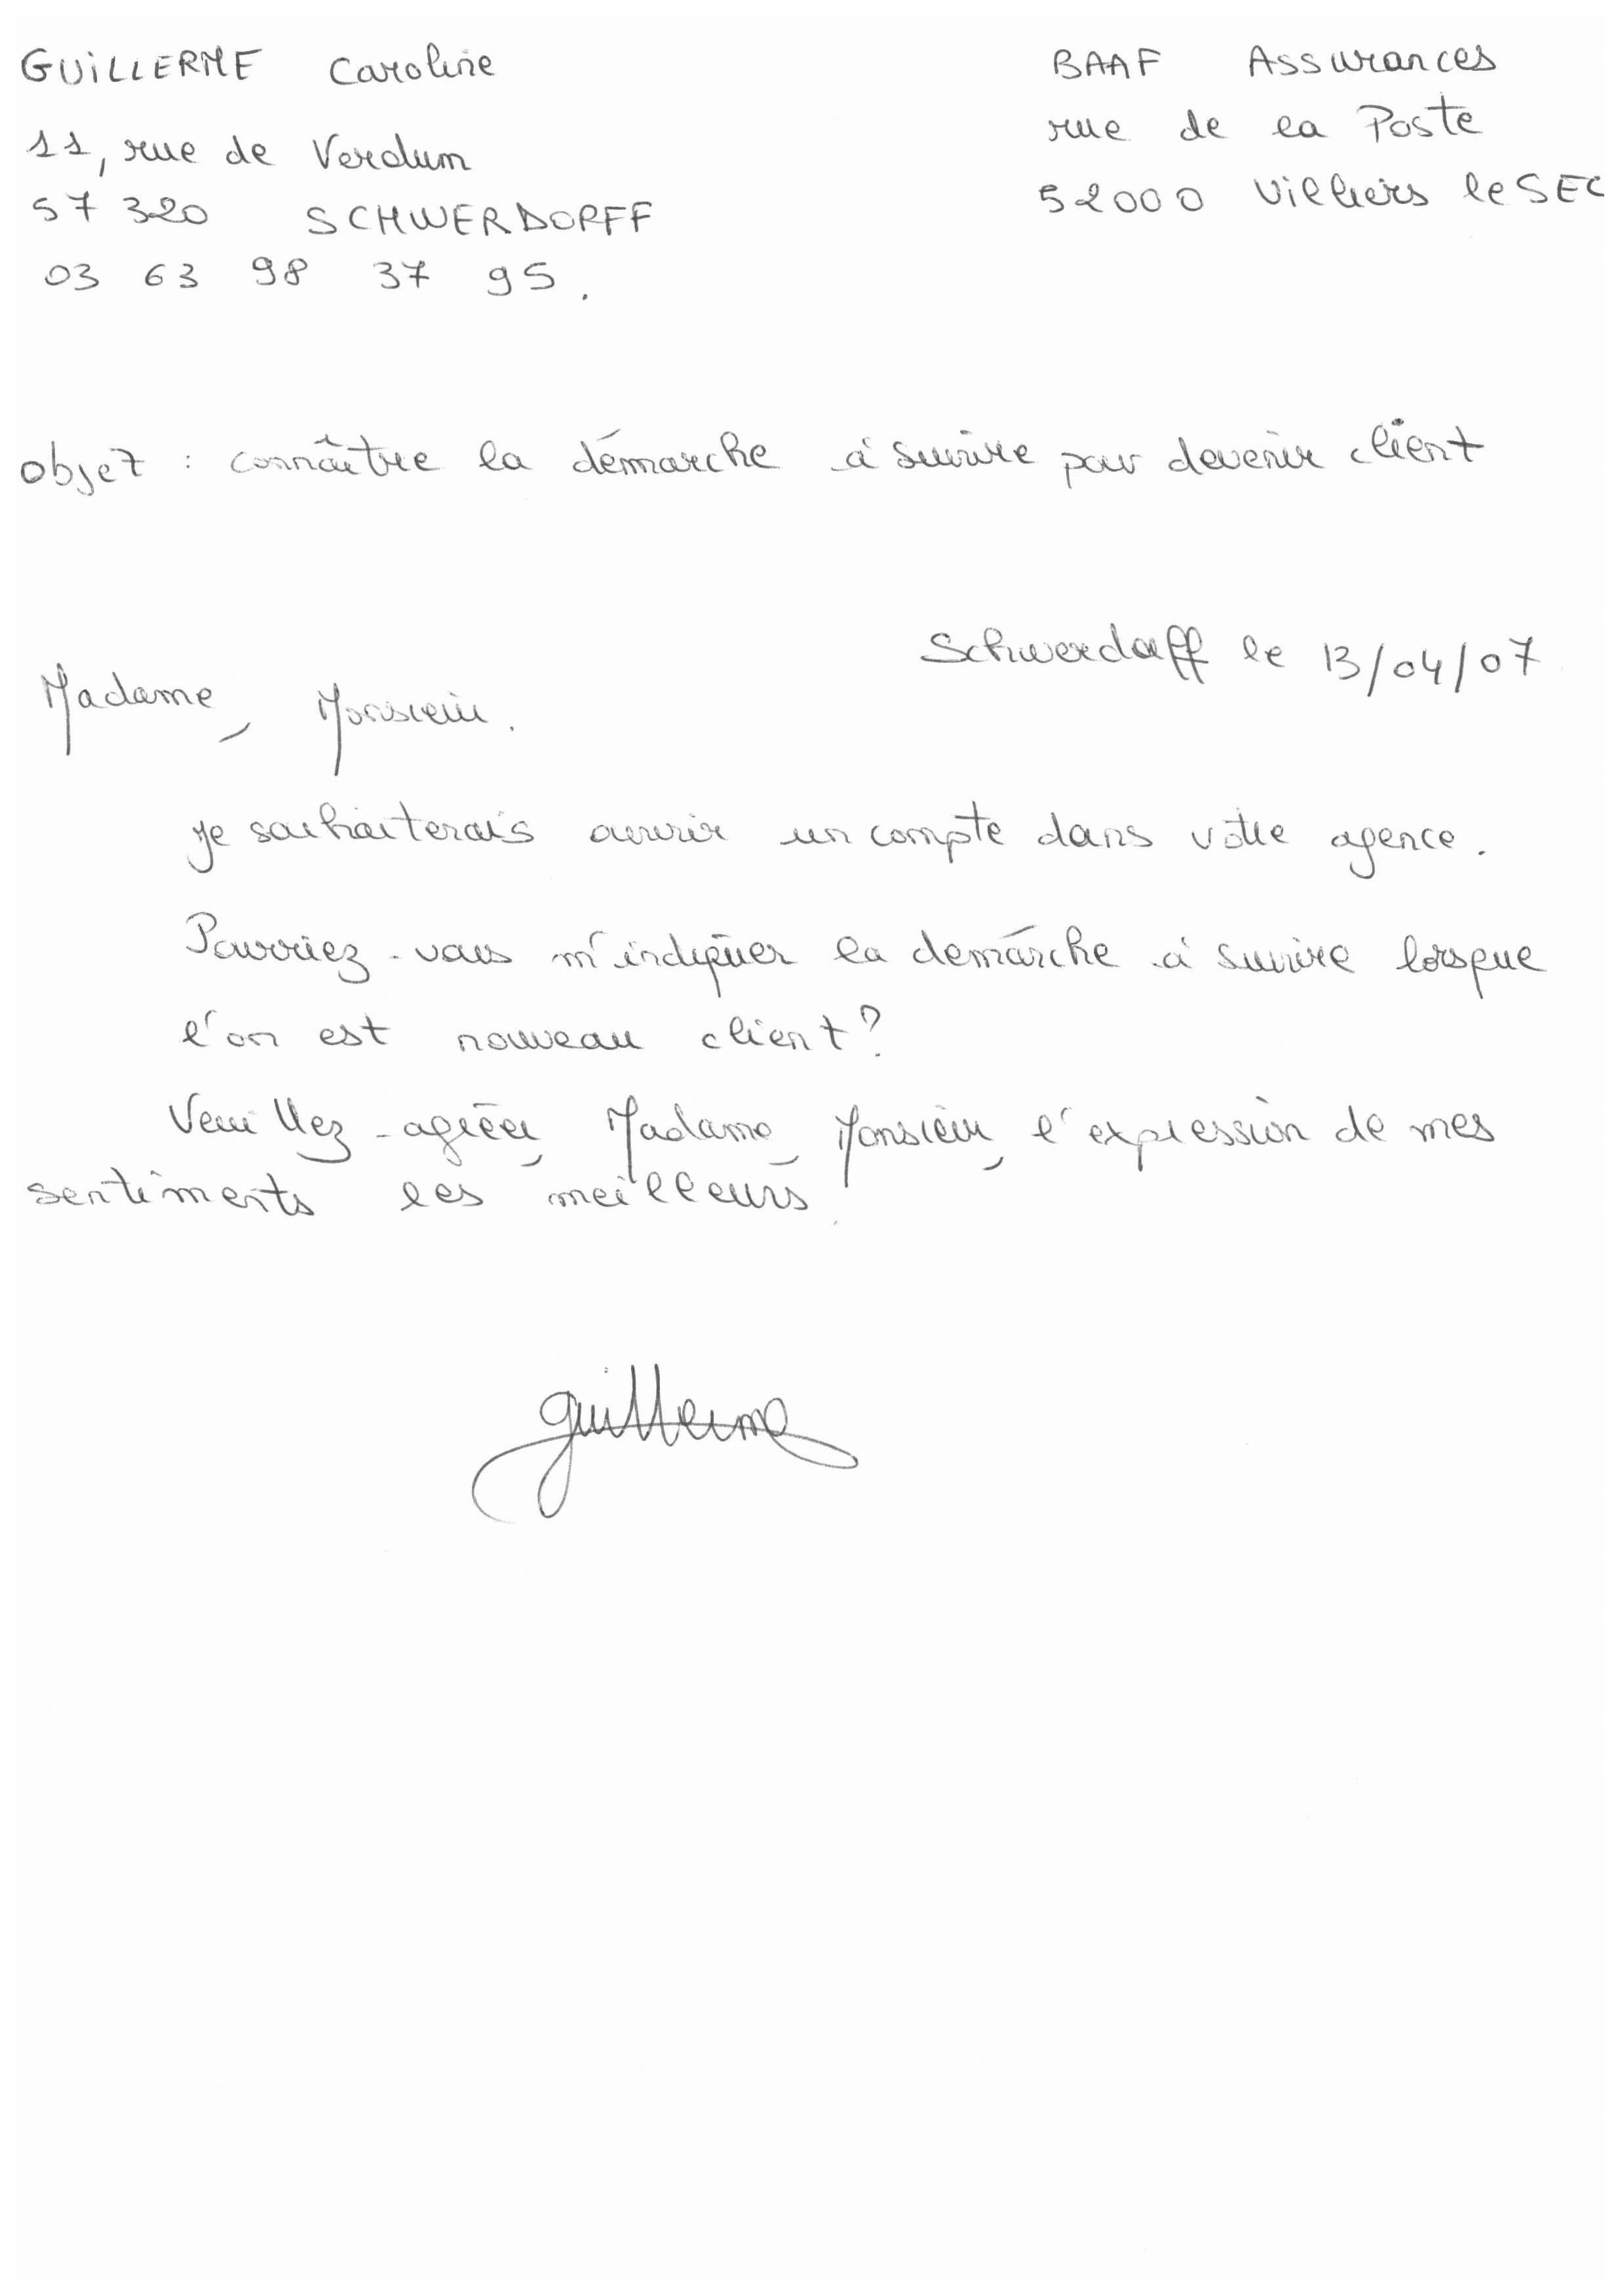 GUILLERME Caroline
11, rue de Verdum
57 320 SCHWERDORFF
03 63 98 37 95.
BAAF Assurances
rue de la Poste
52000 Villiers le SEC
objet : connaître la démarche à suivre pour devenir client
Schwerdorff le 13/04/07
Madame, Monsieur.
je souhaiterais ouvrir un compte dans votre agence.
Pourriez-vous m'indiquer la démarche à suivre lorsque
l'on est nouveau client?
Veuillez-agréer, Madame, Monsieur, l'expression de mes
sentiments les meilleurs.
Guillerme